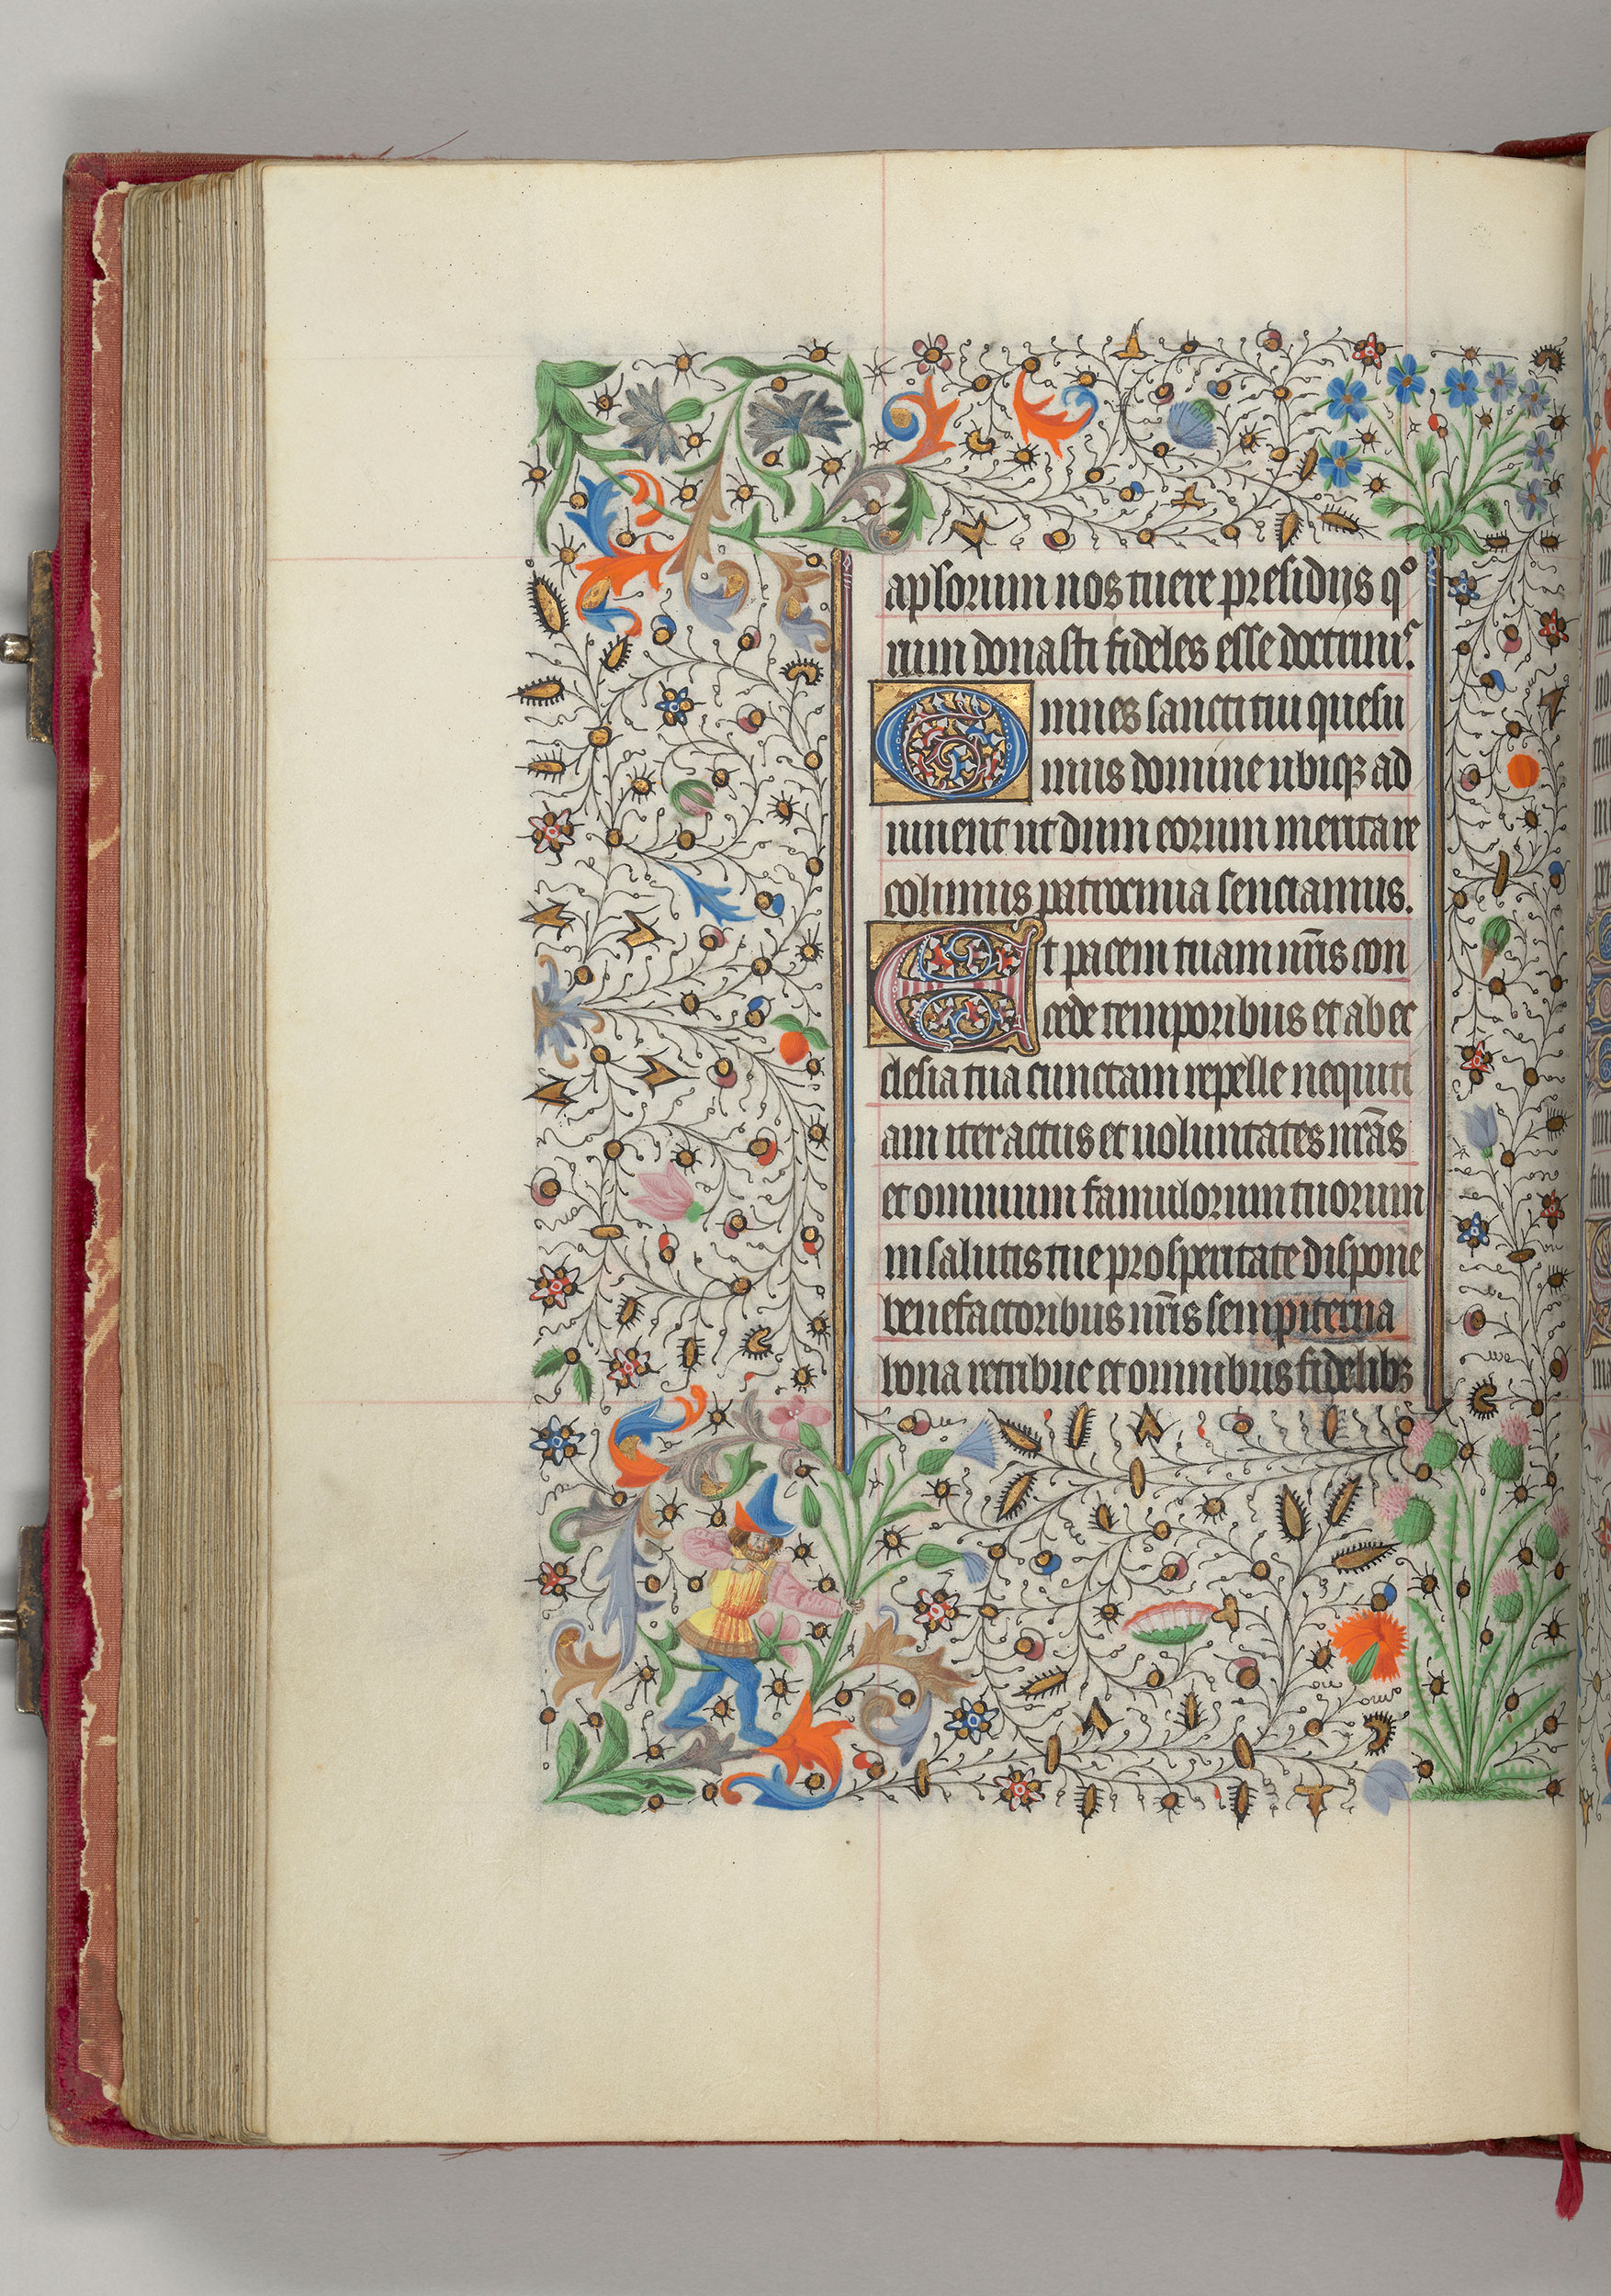 aplorum nos tuere presidijs qͦ
rum donasti fideles esse doctrinis.
Omnes sancti tui quesu
mus domine ubiqꝫ ad
iuuent ut dum eorum merita re
colimus patrocinia senciamus.
Et pacem tuam nr̄is con
cede temporibus et ab ec
clesia tua cunctam repelle nequiti
am iter actus et uoluntates nr̄as
et omnium famulorum tuorum
in salutis tue prosperitate dispone
benefactoribus nr̄is sempiterna
bona retribue et omnibus fidelibꝫ